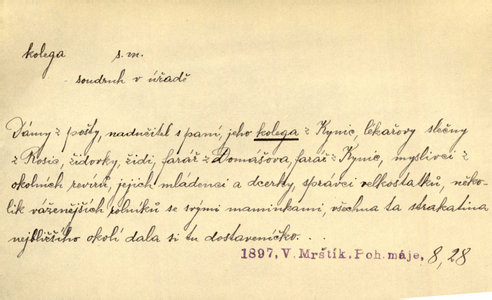 kolega s. m.
- soudruh v úřadě
Dámy z pošty, nadučitel s paní, jeho kolega z Kynic, lékařovy slečny
z Rosic, židovky, židi, farář z Domášova, farář z Kynic, myslivci z
okolních revírů, jejich mládenci a dcerky, správci velkostatků, něko-
lik váženějších rolníků se svými maminkami, všechna ta strakatina
nejbližšího okolí dala si tu dostaveníčko...
1897, V. Mrštík. Poh. máje, 8, 28